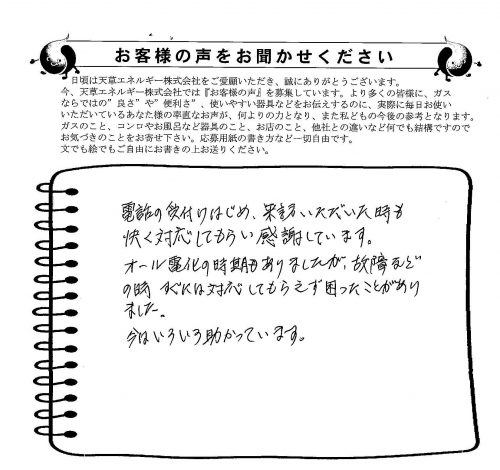 お客様の声をお聞かせください
日頃は天草エネルギー株式会社をご愛顧いただき、誠にありがとうございます。
今、天草エネルギー株式会社では『お客様の声』を募集しています。より多くの皆様に、ガス
ならではの"良さ"や"便利さ"、使いやすい器具などをお伝えするのに、実際に毎日お使い
いただいているあなた様の率直なお声が、何よりの力となり、また私どもの今後の参考となります。
ガスのこと、コンロやお風呂など器具のこと、お店のこと、他社との違いなど何でも結構ですので
お気づきのことをお寄せ下さい。応募用紙の書き方など一切自由です。
文でも絵でもご自由にお書きの上お送りください。
電話の受付けはじめ、来訪いただいた時も
快く対応してもらい感謝しています。
オール電化の時期もありましたが、故障など
の時 すぐには対応してもらえず困ったことがあり
ました。
今はいろいろ助かっています。